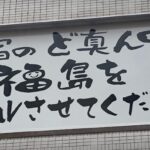 宿のど真ん中
福島を
ルさせてくだ